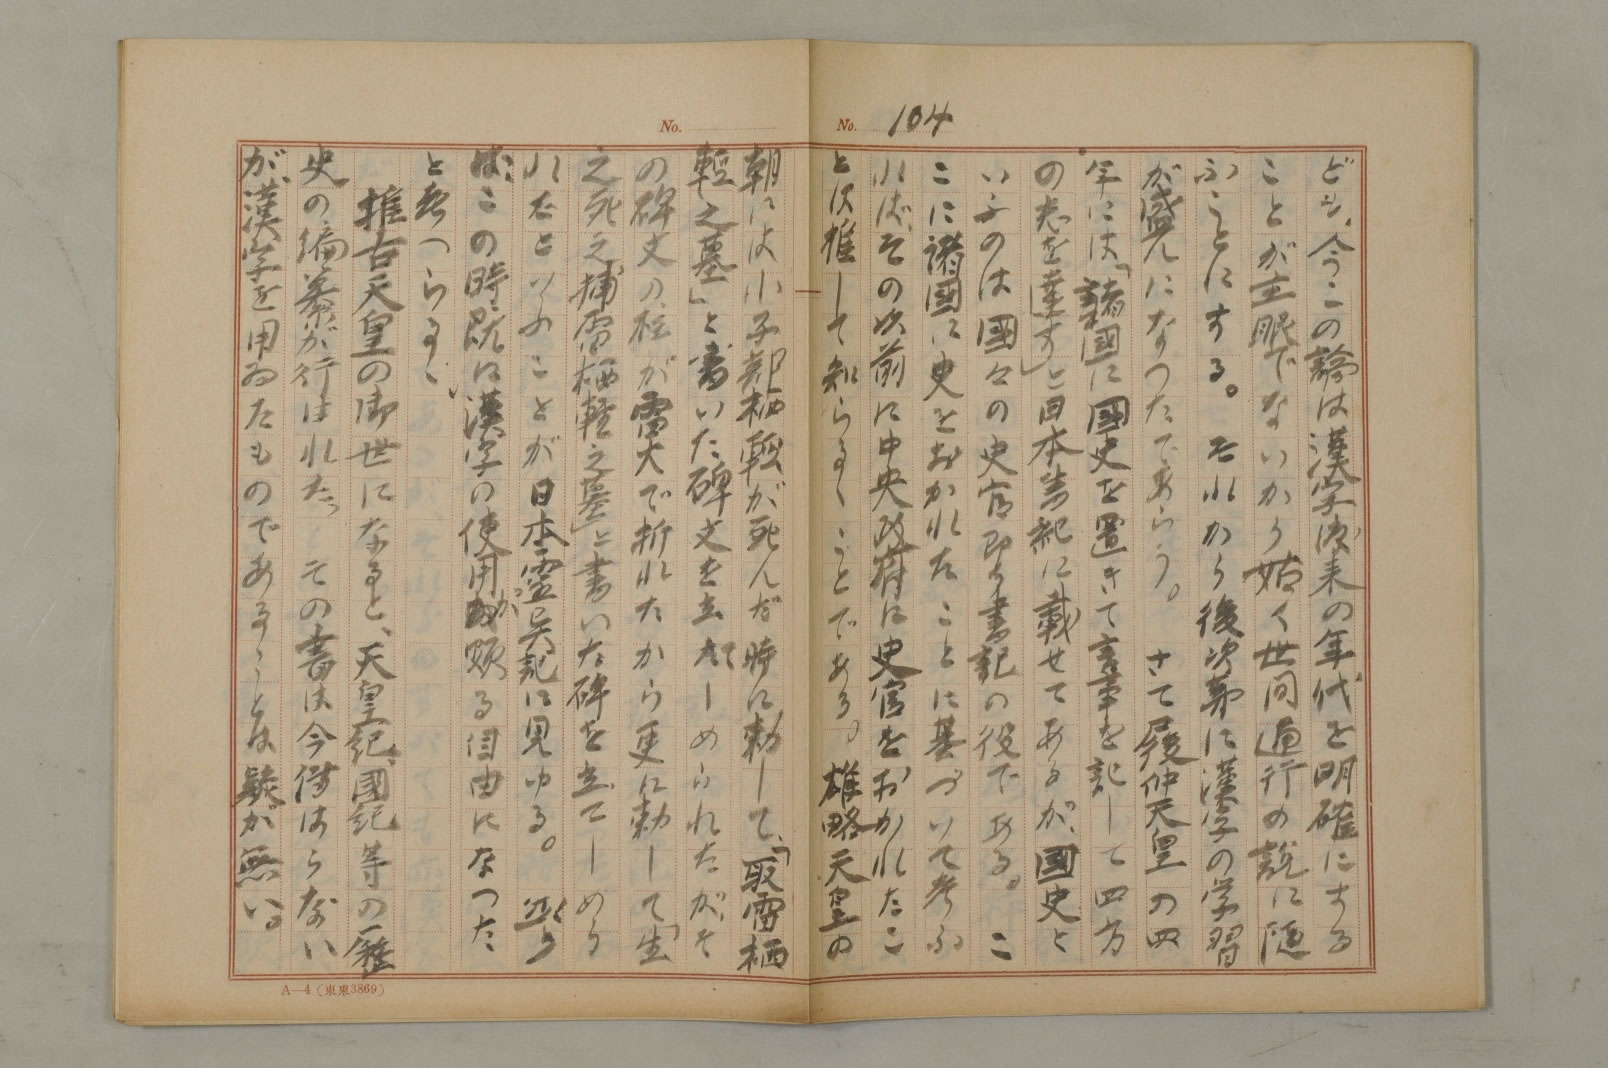 No. 104
ども、今この論は漢字渡来の年代を明確にする
ことが主眼でないから姑く世間通行の説に随
ふことにする。それから後次第に漢字の学習
が盛んになつたであらう。さて履仲天皇の四
年には「諸國に國史を置きて言事を記して四方
の志を達す」と日本書紀に載せてあるが、國史と
いふのは國々の史官即ち書記の役である。こ
こに諸國に史をおかれたことに基づいて考ふ
ればその以前に中央政府に史官をおかれたこ
とは推して知らるゝことである。雄略天皇の
No.
朝には小子部栖軽が死んだ時に勅して、「取雷栖
軽之墓」と書いた碑文を立たてしめられたが、そ
の碑文の柱が雷火で折れたから更に勅して「生
之死之捕雷栖軽之墓」と書いた碑を立てしめら
れたといふことが日本霊異記に見ゆる。然ら
ば、この時既に漢字の使用が頗る自由になつた
と考へらるゝ
推古天皇の御世になると、天皇紀、國紀等の歴
史の編纂が行はれた。その書は今傳はらない
が、漢字を用ゐたものであることは疑が無い。
A—4(東東3869)